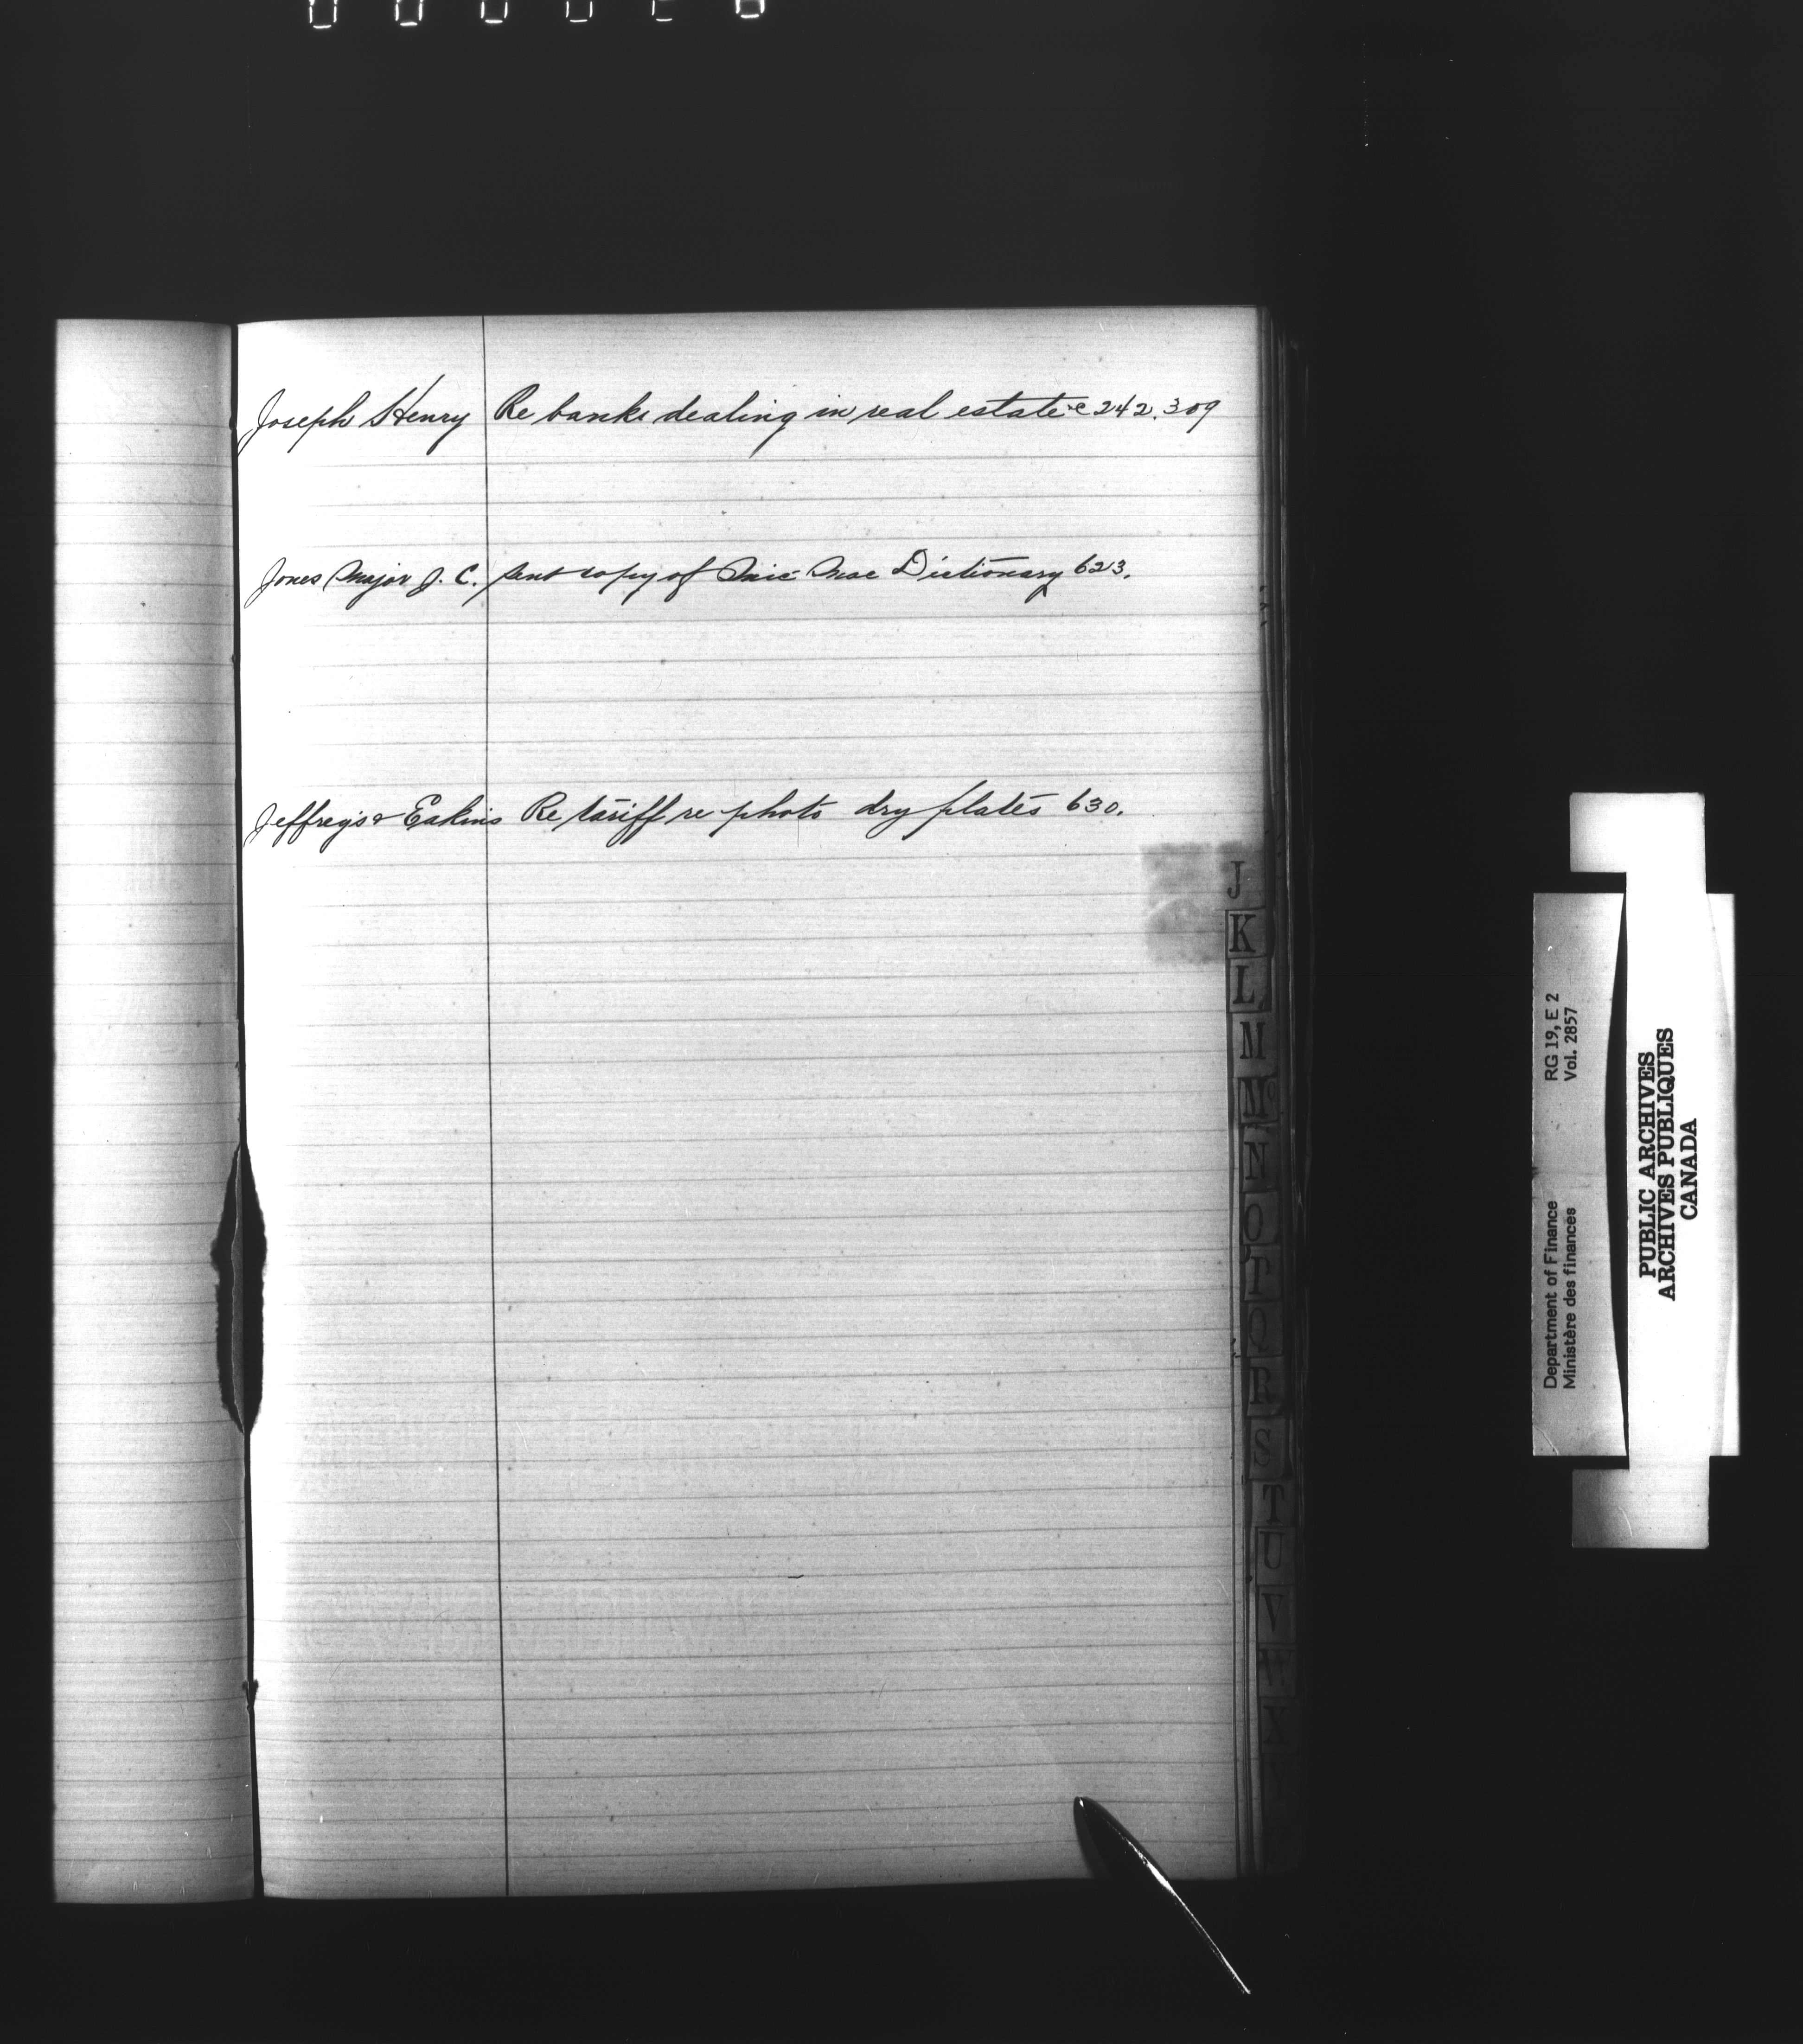 Joseph Henry Re banks dealing in real estate 242. 309
Jones Major J. C. sent copy of Mic-Mac Dictionary 623.
Jeffreys & Eakins Re tariff re photo dry plates 630.
J
K
L
M
Mc
N
O
P
Q
R
S
T
U
V
W
X
Y
Department of Finance RG 19, E 2
Ministère des finances Vol. 2857
PUBLIC ARCHIVES
ARCHIVES PUBLIQUES
CANADA